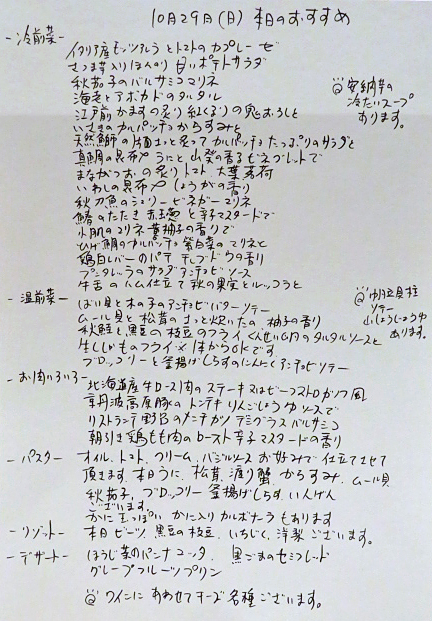 10月29日(日) 本日のおすすめ
- 冷前菜 -
イタリア産モッツァレラとトマトのカプレーゼ
さつま芋入りほんのり甘いポテトサラダ
秋茄子のバルサミコマリネ
海老とアボカドのタルタル
江戸前かますの炙り 紅くるりの鬼おろしと
いさきのカルパッチョからすみと
天然鰤の片面さっと炙ってカルパッチョ たっぷりのサラダと
真鯛の昆布〆 うにと 山葵の香るビネグレットで
まながつおの炙り トマト 大葉 茗荷
いわしの昆布〆 しょうがの香り
秋刀魚のシェリービネガーマリネ
鯵のたたき 赤玉葱と辛子マスタードで
小肌のマリネ 黄柚子の香りで
ひげ鯛のカルパッチョ 紫白菜のマリネと
鶏白レバーのパテ 干しブドウの香り
プンタレッラのサラダ アンチョビソース
牛舌のハム仕立て 秋の果実とルッコラと
安納芋の
冷たいスープ
あります。
- 温前菜 -
ばい貝と木の子のアンチョビバターソテー
ムール貝と松茸のさっと炊いたの 柚子の香り
秋鮭と黒豆の枝豆のフライ くんせい卵のタルタルソースと
生しいたものフライ × 1本からOKです
ブロッコリーと釜揚げしらすのにんにくアンチョビソテー
帆立貝柱
ソテー
山しょうじょうゆ
あります。
- お肉いろいろ -
北海道産牛ロース肉のステーキ 又はビーフストロガノフ風
京丹波高原豚のトンテキ りんごじょうゆソースで
リストランテ野呂のメンチカツ デミグラスバルサミコ
朝引き鶏もも肉のロースト 辛子マスタードの香り
- パスタ -
オイル、トマト、クリーム、バジルソース お好みで仕立てさせて
頂きます。本日うに、松茸、渡り蟹、からすみ、ムール貝
秋茄子、ブロッコリー、釜揚げしらす、いんげん
ございます。
かに玉っぽい かに入りカルボナーラもあります
- リゾット -
本日ビーツ、黒豆の枝豆、いちじく、洋梨ございます。
- デザート -
ほうじ茶のパンナコッタ、黒ごまのセミフレッド
グレープフルーツプリン
ワインにあわせてチーズ各種ございます。